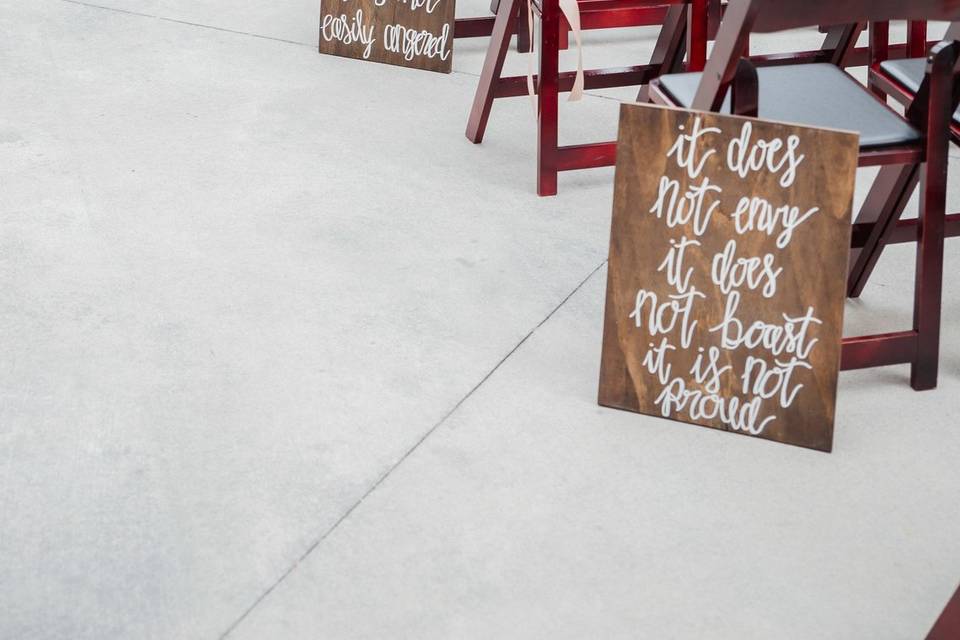 not
easily angered
it does
not envy
it does
not boast
it is not
proud